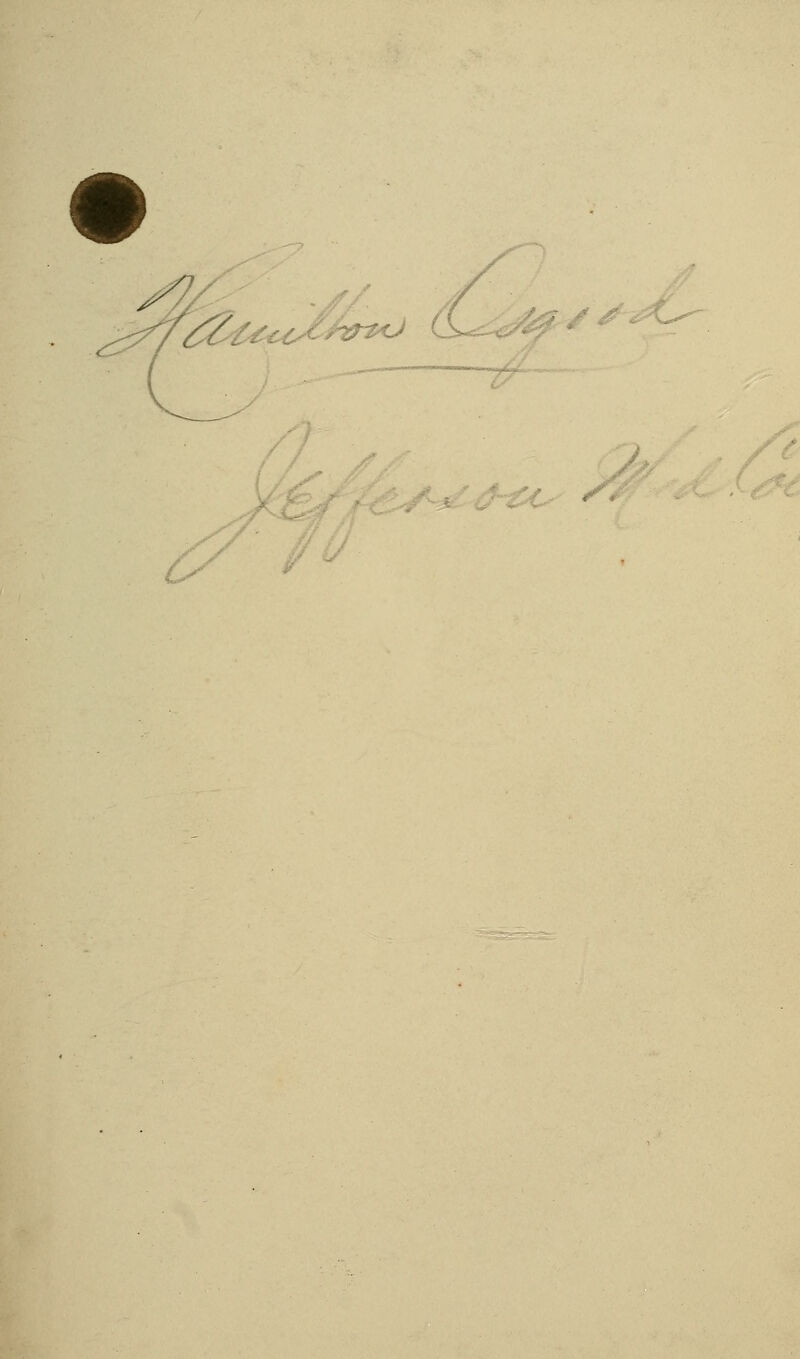 Hamilton Osgood
Jefferson Med. Co